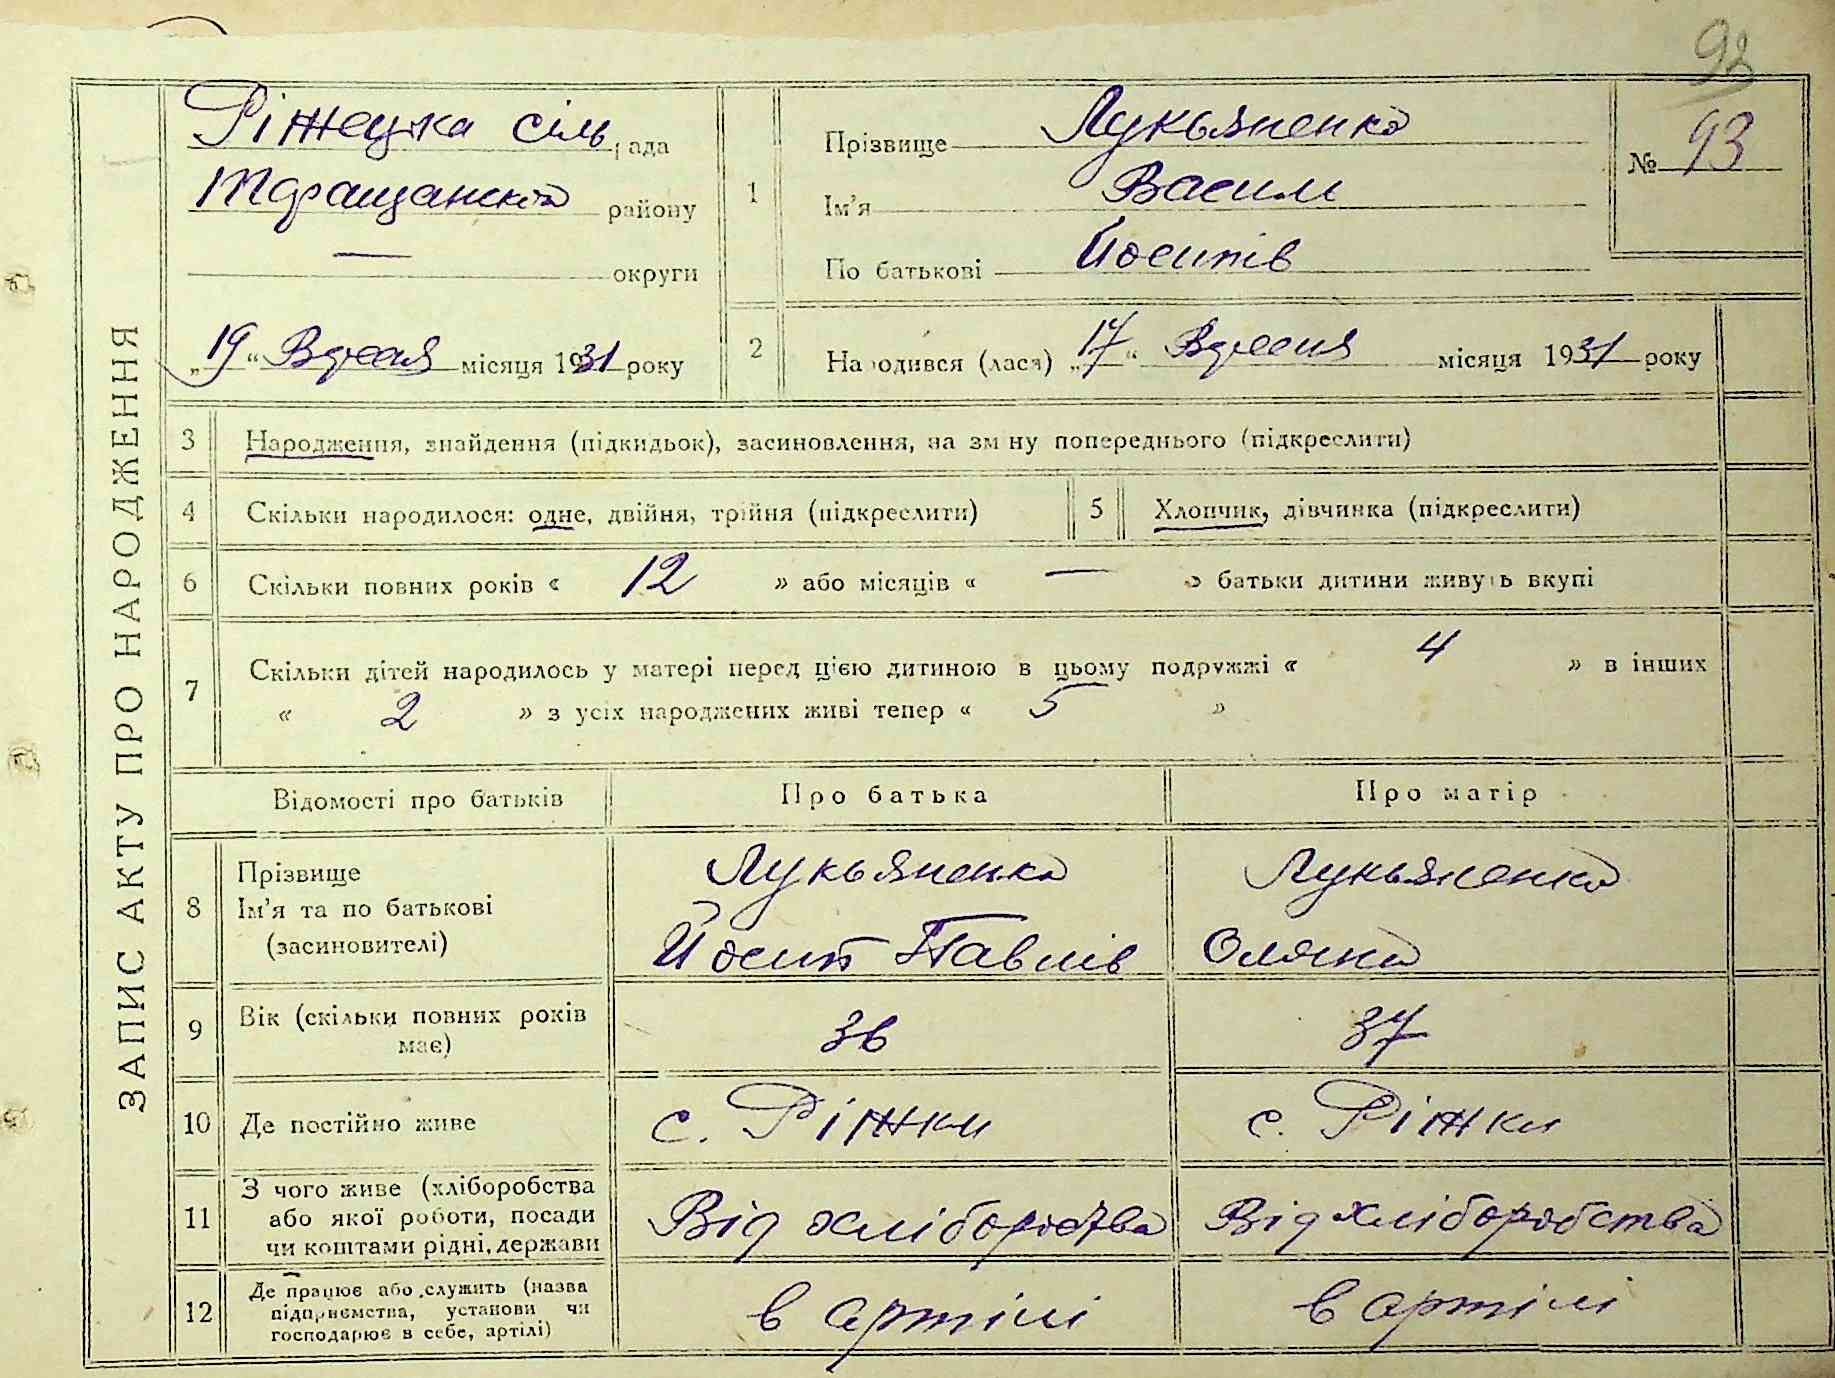 92
ЗАПИС АКТУ ПРО НАРОДЖЕННЯ
Ріжецка сіль рада
Таращанско району
— округи
„19“ Вресня місяця 1931 року
1
Прізвище Лукьяненко
Ім’я Василь
По батькові Йосипів
№ 93
2
Народився (лася) „17“ Вресня місяця 1931 року
3 Народження, знайдення (підкидьок), засиновлення, на зміну попереднього (підкреслити)
4 Скільки народилося: одне, двійня, трійня (підкреслити) 5 Хлопчик, дівчинка (підкреслити)
6 Скільки повних років « 12 » або місяців « — » батьки дитини живуть вкупі
7 Скільки дітей народилось у матері перед цією дитиною в цьому подружжі « 4 » в інших
« 2 » з усіх народжених живі тепер « 5 »
Відомості про батьків Про батька Про матір
8 Прізвище Лукьяненко Лукьяненко
Ім’я та по батькові
(засиновителі) Йосип Павлів Оляна
9 Вік (скільки повних років
має) 36 37
10 Де постійно живе с. Ріжки с. Ріжки
11 З чого живе (хліборобства
або якої роботи, посади Від хлібороства Від хліборобства
чи коштами рідні, держави
12 Де працює або служить (назва
підприємства, установи чи в артілі в артілі
господарює в себе, артілі)